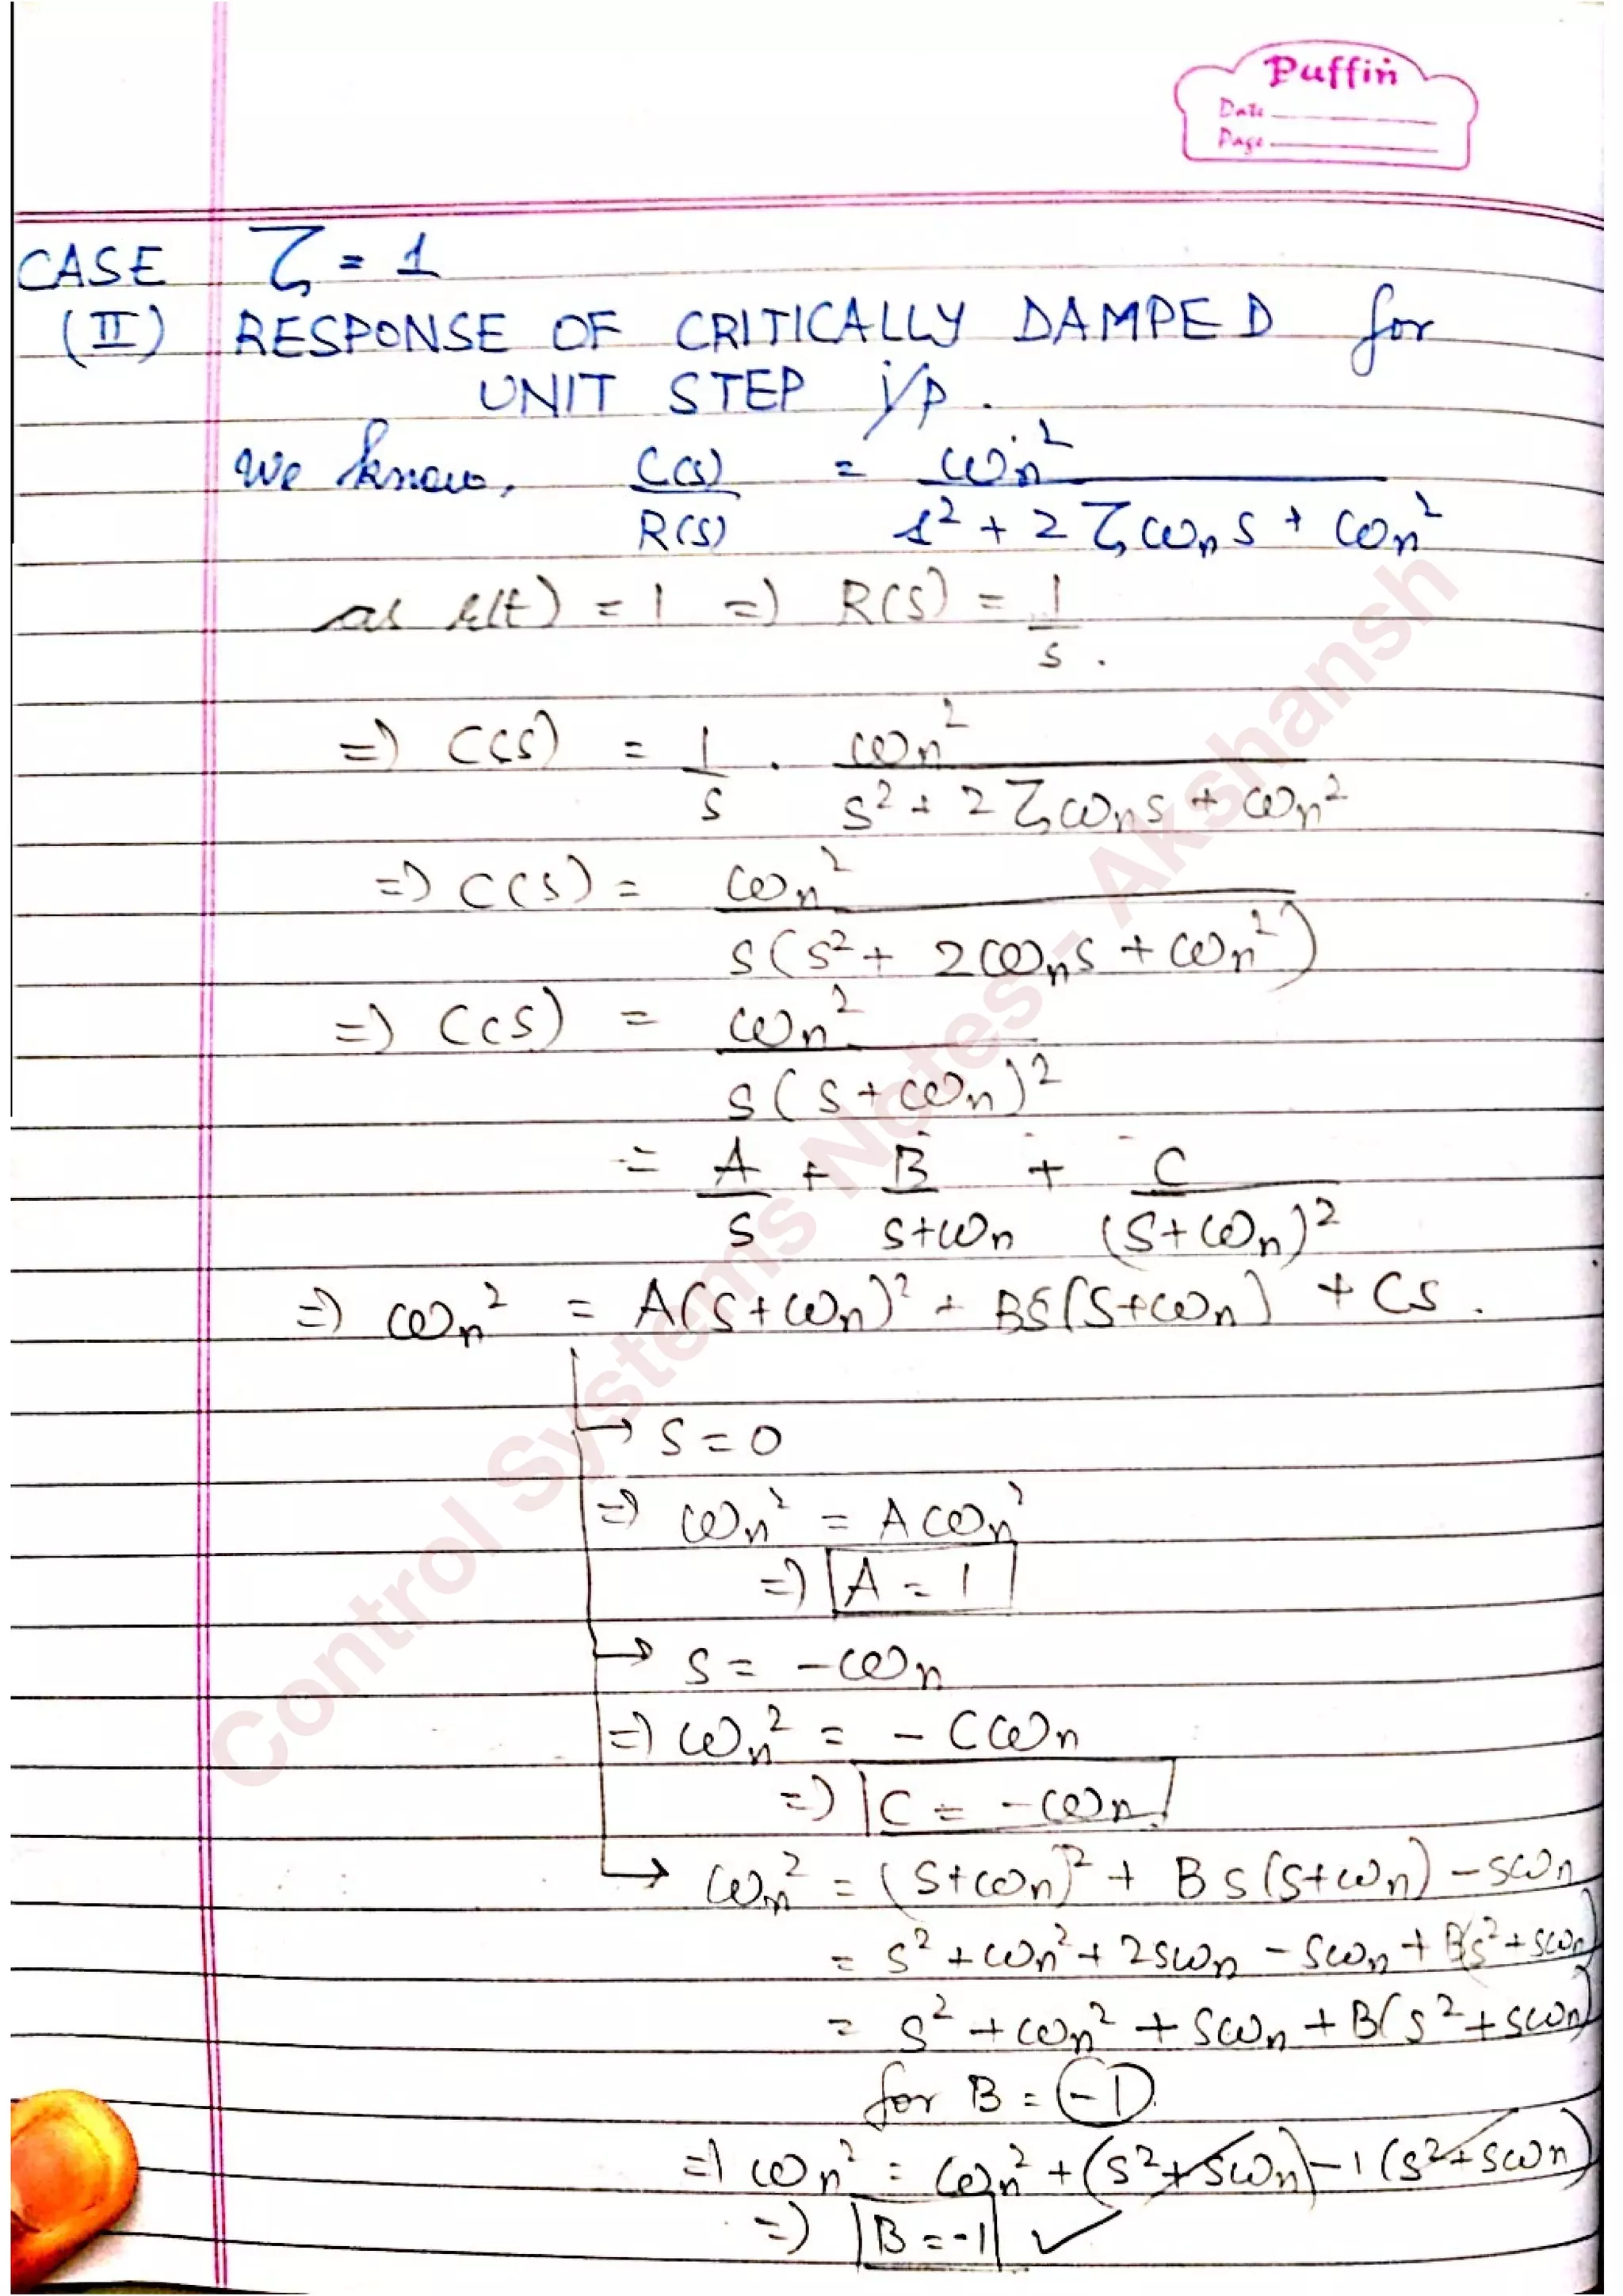 Puffin
Date
Page
CASE ζ = 1
(II) RESPONSE OF CRITICALLY DAMPED for
UNIT STEP i/p.
We know, C(s)/R(s) = ωn²/(s² + 2ζωns + ωn²)
as r(t) = 1 => R(s) = 1/s.
=> C(s) = 1/s . ωn²/(s² + 2ζωns + ωn²)
=> C(s) = ωn²/(s(s² + 2ωns + ωn²))
=> C(s) = ωn²/(s(s+ωn)²)
= A/s + B/(s+ωn) + C/(s+ωn)²
=> ωn² = A(s+ωn)² + Bs(s+ωn) + Cs.
→ s = 0
=> ωn² = Aωn²
=> A = 1
→ s = -ωn
=> ωn² = -Cωn
=> C = -ωn
→ ωn² = (s+ωn)² + Bs(s+ωn) - sωn
= s² + ωn² + 2sωn - sωn + B(s² + sωn)
= s² + ωn² + sωn + B(s² + sωn)
for B = -1
=> ωn² = ωn² + (s² + sωn) - 1(s² + sωn)
=> B = -1 ✓
Control Systems Notes - Akshansh